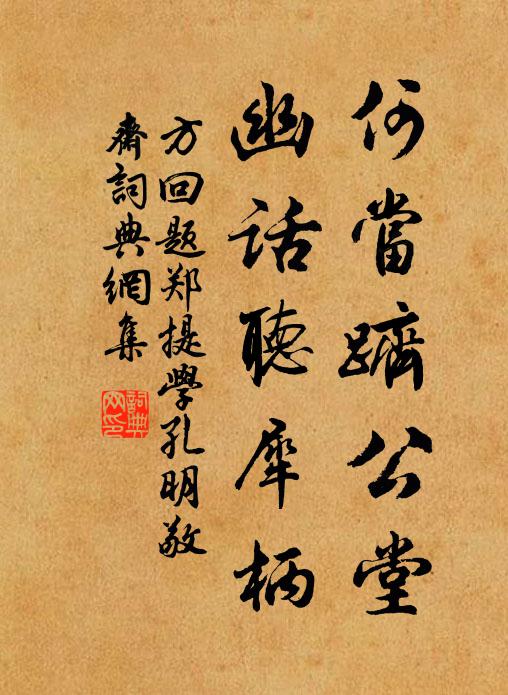 何當躋公堂
幽話聽犀柄
方回題郑提學孔明敬
齋詞典網集
詞典
网印